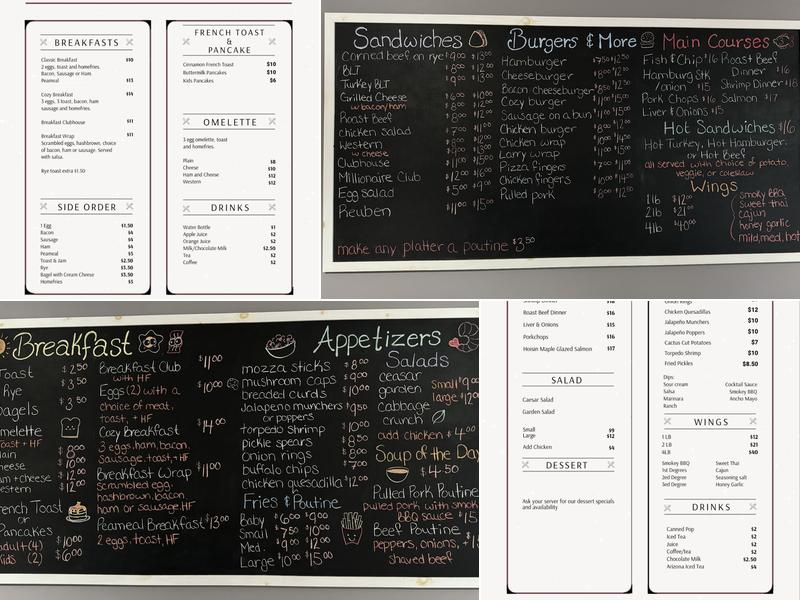 BREAKFASTS
Classic Breakfast $10
2 eggs, toast and homefries.
Bacon, Sausage or Ham
Peameal $13
Cozy Breakfast $14
3 eggs, 3 toast, bacon, ham
sausage and homefries.
Breakfast Clubhouse $11
Breakfast Wrap $11
Scrambled eggs, hashbrown, choice
of bacon, ham or sausage. Served
with salsa.
Rye toast extra $1.50
SIDE ORDER
1 Egg $1.50
Bacon $4
Sausage $4
Ham $4
Peameal $5
Toast & Jam $2.50
Rye $3.50
Bagel with Cream Cheese $3.50
Homefries $3
FRENCH TOAST
&
PANCAKE
Cinnamon French Toast $10
Buttermilk Pancakes $10
Kids Pancakes $6
OMELETTE
3 egg omelette, toast
and homefries.
Plain $8
Cheese $10
Ham and Cheese $12
Western $12
DRINKS
Water Bottle $1
Apple Juice $2
Orange Juice $2
Milk/Chocolate Milk $2.50
Tea $2
Coffee $2
Sandwiches
Corned beef on rye $9.00 $13.00
BLT $8.00 $12.00
Turkey BLT $9.00 $13.00
Grilled Cheese
w bacon/ham
Roast Beef
chicken salad $7.00 $11.00
Western
w cheese
Clubhouse $11.00 $15.00
Millionaire Club $12.00 $16.00
Egg salad $5.00 $9.00
Reuben $11.00 $15.00
make any platter a poutine $3.50
Burgers & More
Hamburger $7.50 $12.50
Cheeseburger $8.00 $12.50
Bacon cheeseburger
Cozy burger
Sausage on a bun
Chicken burger
Chicken wrap
Larry wrap
Pizza fingers
Chicken fingers
Pulled pork $8.00 $12.00
Main Courses
Fish & Chip $16 Roast Beef
Hamburg Stk Dinner $16
/onion $15 Shrimp Dinner $18
Pork Chops $16 Salmon $17
Liver & Onions $15
Hot Sandwiches $16
Hot Turkey, Hot Hamburger,
or Hot Beef
all served with choice of potato,
veggie, or coleslaw
Wings
1lb $12.00
2lb $21.00
4lb $40.00
smokey BBQ
sweet thai
cajun
honey garlic
mild, med, hot
Breakfast
Toast $2.50
Rye $3.50
Bagels $3.50
melette
Toast + HF
lain $8.00
heese $10.00
am + cheese $12.00
estern $12.00
rench Toast
or
Pancakes
adult (4) $10.00
Kids (2) $6.00
Breakfast Club $11.00
with HF
Eggs (2) with a $10.00
choice of meat,
toast, + HF
Cozy Breakfast $14.00
3 eggs, ham, bacon,
sausage, toast, + HF
Breakfast Wrap $11.00
scrambled egg,
hashbrown, bacon
ham or sausage, HF
Peameal Breakfast $13.00
2 eggs, toast, HF
Appetizers
mozza sticks $8.00
mushroom caps $9.00
breaded curds $10.00
Jalapeno munchers $9.50
or poppers
torpedo shrimp $10.00
pickle spears $8.50
Onion rings $8.00
buffalo chips $7.00
chicken quesadilla $12.00
Fries & Poutine
Baby $6.00 $9.00
Small $7.50 $10.00
Med. $9.00 $12.00
Large $10.00 $15.00
Salads
ceasar
garden
cabbage
crunch
small $9.00
large $12.00
add chicken $4.00
Soup of the Day
$4.50
Pulled Pork Poutine
pulled pork with smok
BBQ sauce $15
Beef Poutine
peppers, onions, +
shaved beef
Shrimp Dinner $18
Roast Beef Dinner $16
Liver & Onions $15
Porkchops $16
Hoisin Maple Glazed Salmon $17
SALAD
Caesar Salad
Garden Salad
Small $9
Large $12
Add Chicken $4
DESSERT
Ask your server for our dessert specials
and availability
Onion Rings
Chicken Quesadillas $12
Jalapeño Munchers $10
Jalapeño Poppers $10
Cactus Cut Potatoes $7
Torpedo Shrimp $10
Fried Pickles $8.50
Dips:
Sour cream Cocktail Sauce
Salsa Smokey BBQ
Marinara Ancho Mayo
Ranch
WINGS
1 LB $12
2 LB $23
4LB $40
Smokey BBQ Sweet Thai
1st Degrees Cajun
2ed Degree Seasoning salt
3ed Degree Honey Garlic
DRINKS
Canned Pop $2
Iced Tea $2
Juice $2
Coffee/tea $2
Chocolate Milk $2.50
Arizona Iced Tea $4